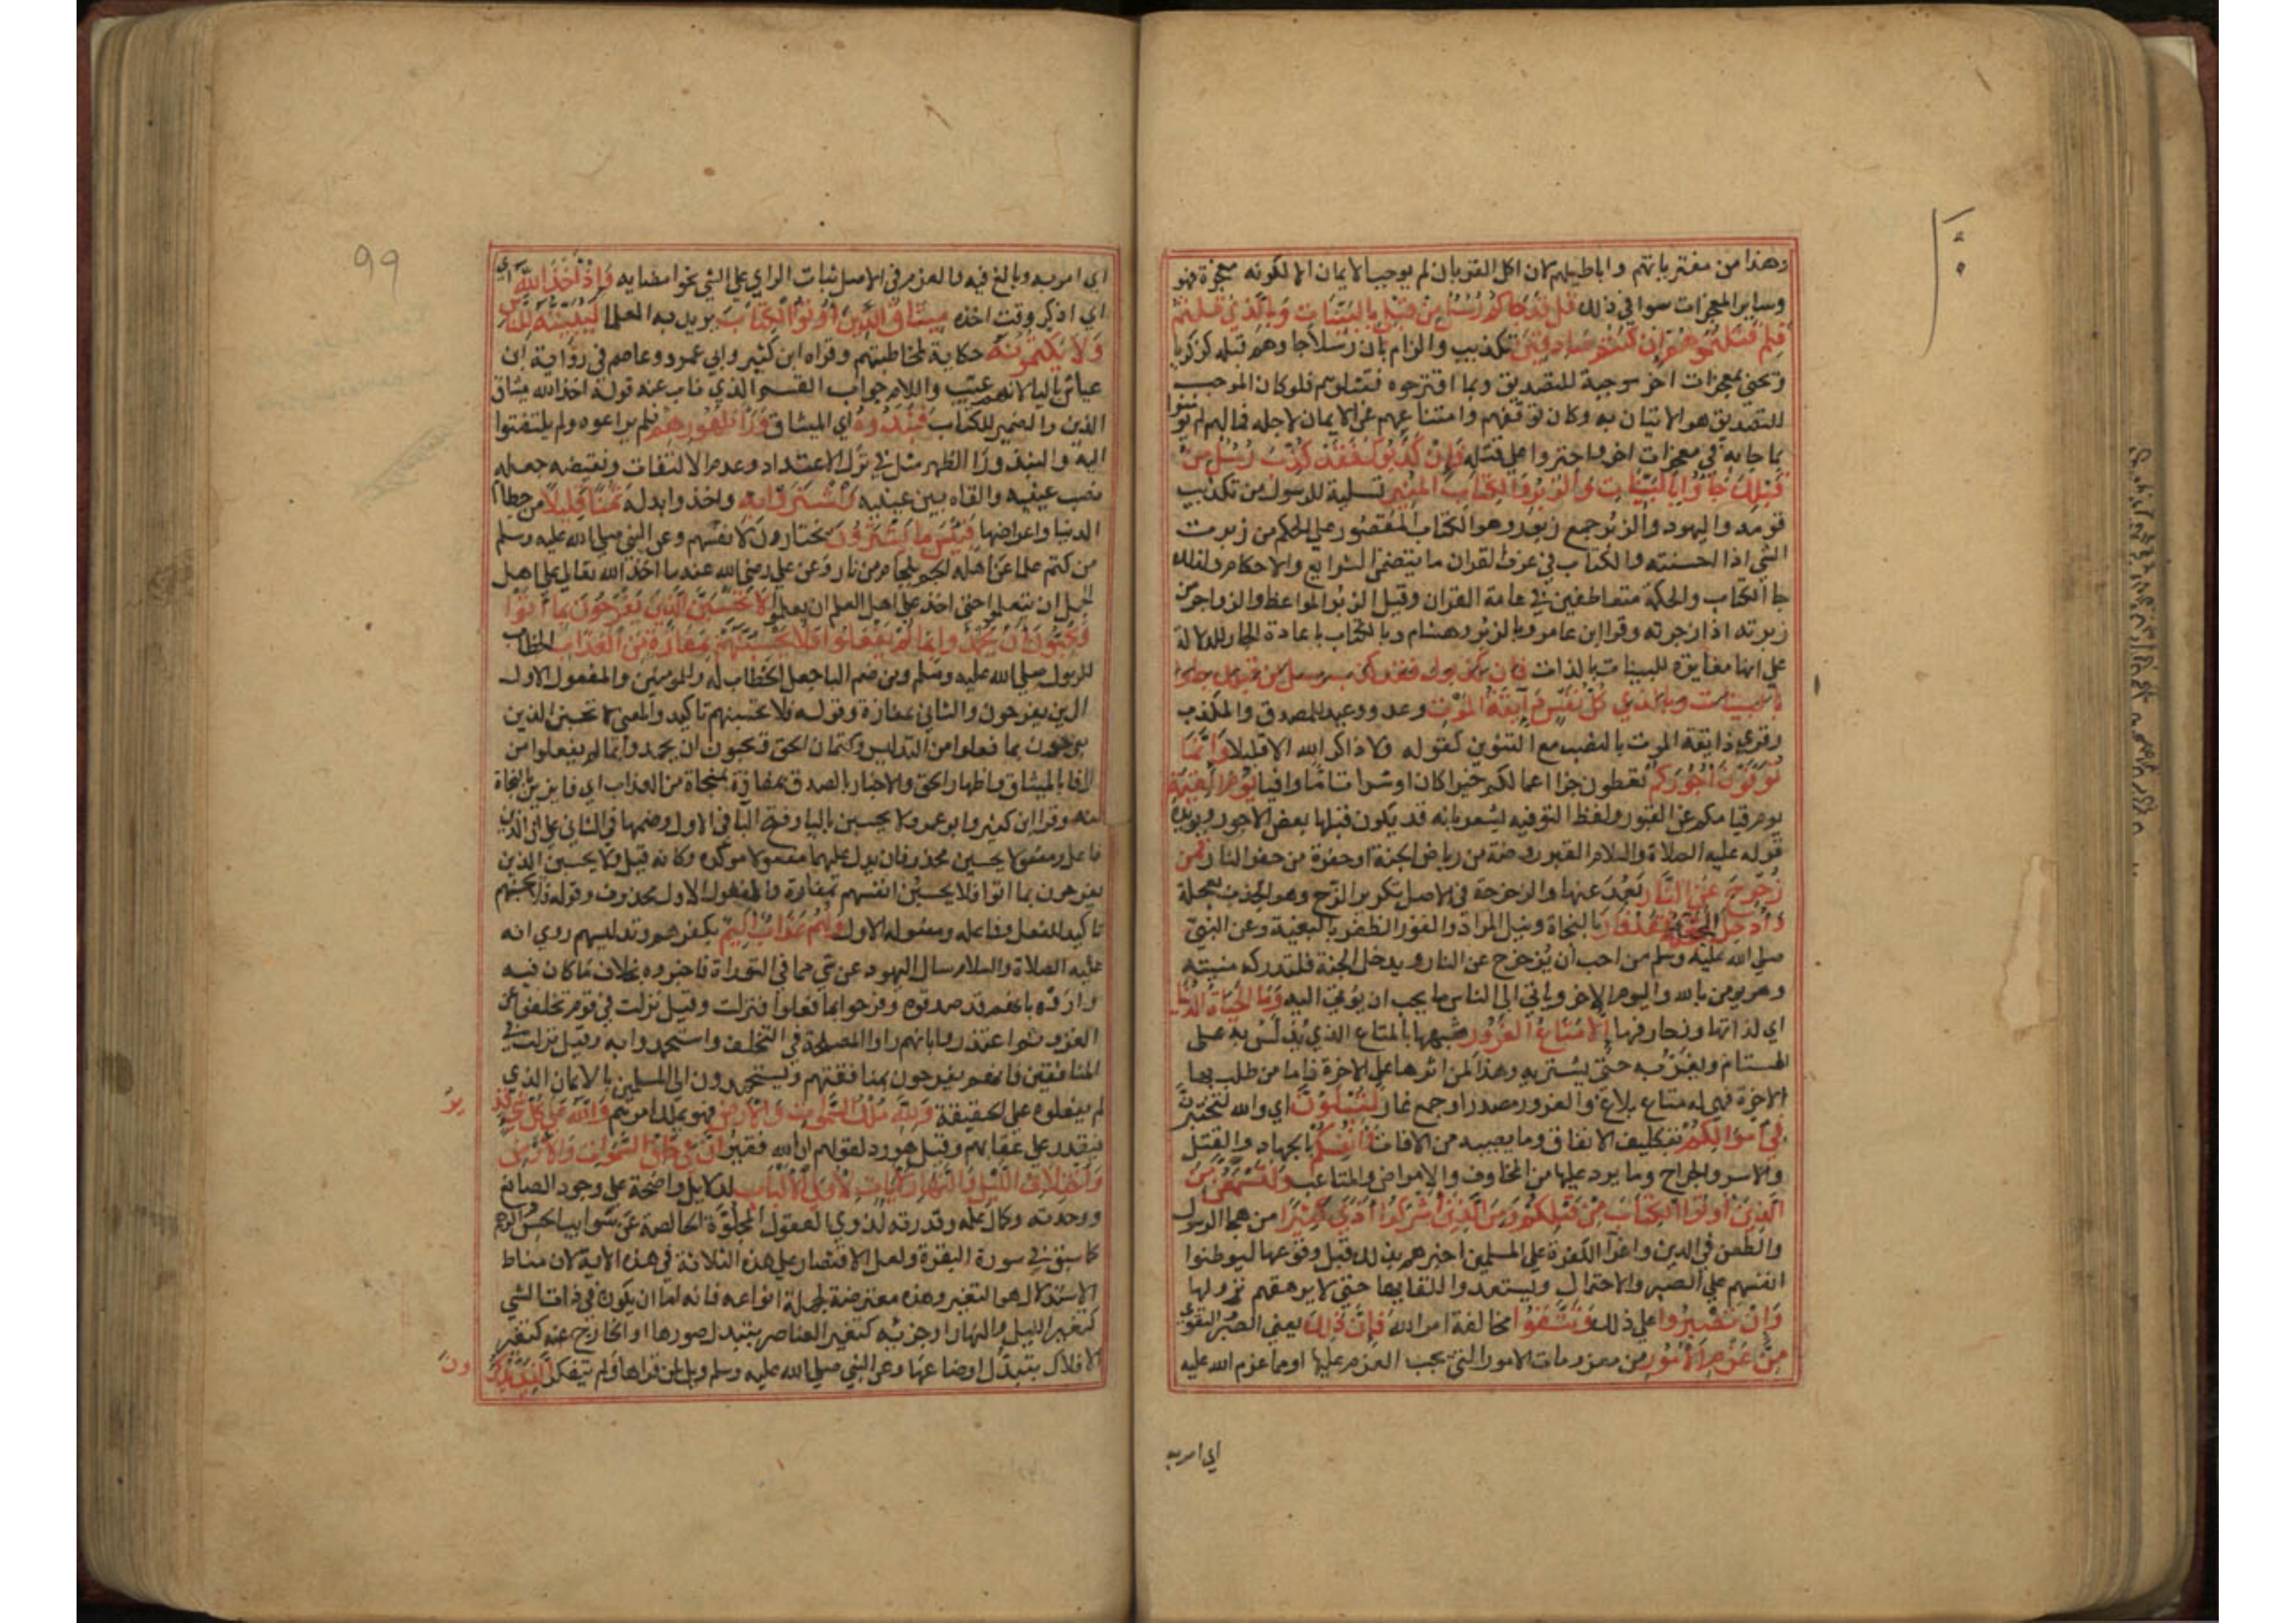 وهذا من مفترياتهم واباطيلهم لان اكل القربان لم يوجب الايمان الا لكونه معجزة فهو
وساير المعجزات سوا في ذلك قل قد جاكم رسل من قبلي بالبينات وبالذي قلتم
فلم قتلتموهم ان كنتم صادقين تكذيب والزام بان رسلا جاوهم قبله كزكريا
ويحيى بمعجزات اخر موجبة للتصديق وبما اقترحوه فقتلوهم فلو كان الموجب
للتصديق هو الاتيان به وكان توقفهم وامتناعهم عن الايمان لاجله فما لهم لم يومنوا
بما جا به في معجزات اخر واجتروا على قتله فان كذبوك فقد كذب رسل من
قبلك جاؤا بالبينات والزبر والكتاب المنير تسلية للرسول من تكذيب
قومه واليهود والزبر جمع زبور وهو الكتاب المقصور على الحكم من زبرت
الشي اذا احسنته والكتاب في عرف القران ما يتضمن الشرايع والاحكام ولذلك
جا الكتاب والحكمة متعاطفين في عامة القران وقيل الزبر المواعظ والزواجر من
زبرته اذا زجرته وقرا ابن عامر وبالزبر وهشام وبالكتاب باعادة الجار للدلالة
على انها مغايرة للبينات بالذات فان كذبوك فقد كذب رسل من قبلك جاوا
بالبينات وبالذي كل نفس ذآيقة الموت وعد ووعيد للمصدق والمكذب
وقري ذايقة الموت بالنصب مع التنوين كقوله ولا ذاكر الله الا قليلا وانما
توفون اجوركم تعطون جزا اعمالكم خيرا كان او شرا تاما وافيا يوم القيمة
يوم قيامكم عن القبور ولفظ التوفيه يشعر بانه قد يكون قبلها بعض الاجور ويويده
قوله عليه الصلاة والسلام القبر روضة من رياض الجنة او حفرة من حفر النار فمن
زحزح عن النار بعد عنها والزحزحة في الاصل تكرير الزح وهو الجذب بعجلة
وادخل الجنة فقد فاز بالنجاة ونيل المراد والفوز الظفر بالبغية وعن النبي
صلى الله عليه وسلم من احب ان يزحزح عن النار ويدخل الجنة فلتدركه منيته
وهو يومن بالله واليوم الاخر وياتي الى الناس ما يحب ان يوتى اليه وما الحياة الدنيا
اي لذاتها وزخارفها الا متاع الغرور شبهها بالمتاع الذي يدلس به على
المستام ويغر به حتى يشتريه وهذا لمن اثرها على الاخرة فاما من طلب بها
الاخرة فهي له متاع بلاغ والغرور مصدر او جمع غار لتبلون اي والله لتختبرن
في اموالكم بتكليف الانفاق وما يصيبه من الافات وانفسكم بالجهاد والقتل
والاسر والجراح وما يرد عليها من المخاوف والامراض والمتاعب ولتسمعن من
الذين اوتوا الكتاب من قبلكم ومن الذين اشركوا اذى كثيرا من هجا الرسول
والطعن في الدين واغرآ الكفرة على المسلمين اخبرهم بذلك قبل وقوعها ليوطنوا
انفسهم على الصبر والاحتمال ويستعدوا للقايها حتى لا يرهقهم نزولها
وان تصبروا على ذلك وتتقوا مخالفة امر الله فان ذلك يعني الصبر والتقوى
من عزم الامور من معزومات الامور التي يجب العزم عليها او مما عزم الله عليه
اي امر به
99
اي امر به وبالغ فيه والعزم في الاصل ثبات الراي على الشي نحو امضايه واذ اخذ الله اي
اي اذكر وقت اخذه ميثاق الذين اوتوا الكتاب يريد به العلما ليبيننه للناس
ولا يكتمونه حكاية لمخاطبتهم وقراه ابن كثير وابي عمرو وعاصم في رواية ابن
عياش باليا لانهم غيب واللام جواب القسم الذي ناب عنه قولة اخذ الله ميثاق
الذين والضمير للكتاب فنبذوه اي الميثاق ورآ ظهورهم فلم يراعوه ولم يلتفتوا
اليه والنبذ ورآ الظهر مثل في ترك الاعتداد وعدم الالتفات ونقيضه جعله
نصب عينيه والقاه بين عينيه واشتروا به واخذوا بدله ثمنا قليلا من حطام
الدنيا واعراضها فبئس ما يشترون يختارون لانفسهم وعن النبي صلى الله عليه وسلم
من كتم علما عن اهله الجم بلجام من نار وعن علي رضي الله عنه ما اخذ الله تعالى على اهل
الجهل ان يتعلموا حتى اخذ على اهل العلم ان يعلموا لا تحسبن الذين يفرحون بما اتوا
ويحبون ان يحمدوا بما لم يفعلوا فلا تحسبنهم بمفازة من العذاب الخطاب
للرسول صلى الله عليه وسلم ومن ضم البا جعل الخطاب له وللمومنين والمفعول الاول
الذين يفرحون والثاني بمفازة وقوله فلا تحسبنهم تاكيد والمعنى لا تحسبن الذين
يفرحون بما فعلوا من التدليس وكتمان الحق ويحبون ان يحمدوا بما لم يفعلوا من
الوفا بالميثاق واظهار الحق والاخبار بالصدق بمفازة بمنجاة من العذاب اي فايزين بالنجاة
منه وقرا ابن كثير وابو عمرو لا يحسبن باليا وفتح البا في الاول وضمها في الثاني على ان الذين
فاعل ومفعولا يحسبن محذوفان يدل عليهما مفعولا موكده وكانه قيل ولا يحسبن الذين
يفرحون بما اتوا فلا يحسبن انفسهم بمفازة والمفعول الاول محذوف وقوله فلا يحسبنهم
تاكيد للفعل وفاعله ومفعوله الاول ولهم عذاب اليم بكفرهم وتدليسهم روي انه
عليه الصلاة والسلام سال اليهود عن شي مما في التوراة فاخبروه بخلاف ما كان فيه
واروه بانهم قد صدقوه وفرحوا بما فعلوا فنزلت وقيل نزلت في قوم تخلفوا عن
الغزو ثم اعتذروا بانهم راوا المصلحة في التخلف واستحمدوا به وقيل نزلت في
المنافقين فانهم يفرحون بمنافقتهم ويستحمدون الى المسلمين بالايمان الذي
لم يفعلوه على الحقيقة ولله ملك السموات والارض فهو يملك امرهم والله على كل شي قدير
فيقدر على عقابهم وقيل هو رد لقولهم ان الله فقير ان في خلق السموات والارض
واختلاف الليل والنهار لايات لاولي الالباب لدلايل واضحة على وجود الصانع
ووحدته وكمال علمه وقدرته لذوي العقول المجلوة الخالصة عن شوايب الحس والوهم
كما سبق في سورة البقرة ولعل الاقتصار على هذه الثلاثة في هذه الاية لان مناط
الاستدلال هو التغير وهذه معترضة لجملة انواعه فانه اما ان يكون في ذات الشي
كتغير الليل والنهار او جزئه كتغير العناصر بتبدل صورها او الخارج عنه كتغير
الافلاك بتبدل اوضاعها وعن النبي صلى الله عليه وسلم ويل لمن قراها ولم يتفكر الذين يذكرون